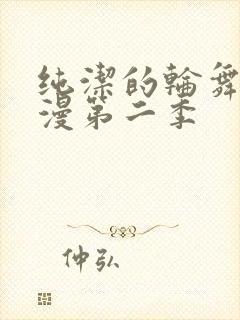 纯潔的輪舞
漫第二季
仲弘